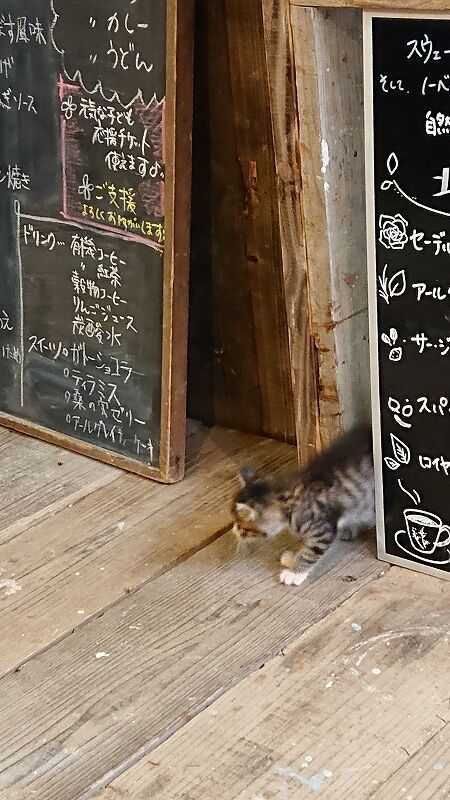 〃 カレー
〃 うどん
ます風味
ぎソース
焼き
子ども
応援チケット
使えますよ
ご支援
よろしくおねがいします
ドリンク… 有機コーヒー
〃 紅茶
穀物コーヒー
りんごジュース
炭酸水
スイーツ。ガトーショコラ
。ティラミス
。桑の実ゼリー
。アールグレイティーケーキ
スウェー
そして、ノーベ
自然
セーデル
アールグ
サー・ジ
スパ
ロイヤ